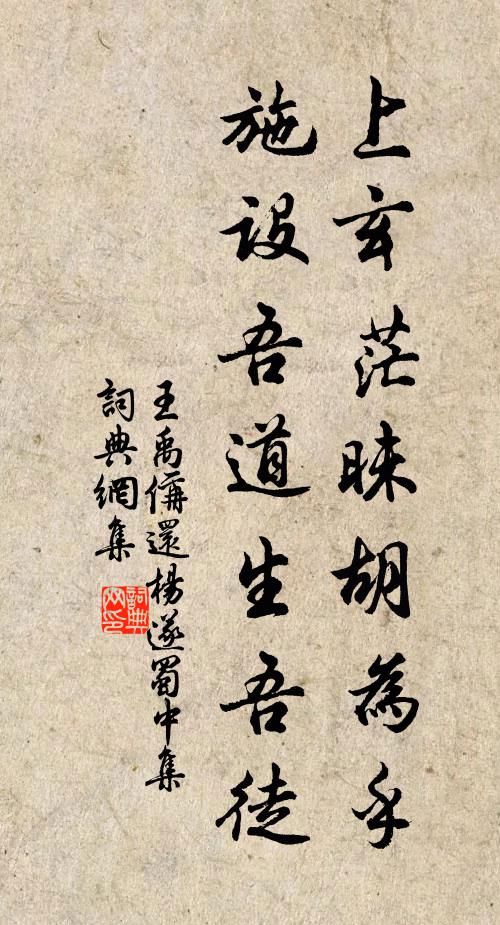 上玄茫昧胡為乎
施設吾道生吾徒
王禹偁還楊遂蜀中集
詞典網集
詞典网印